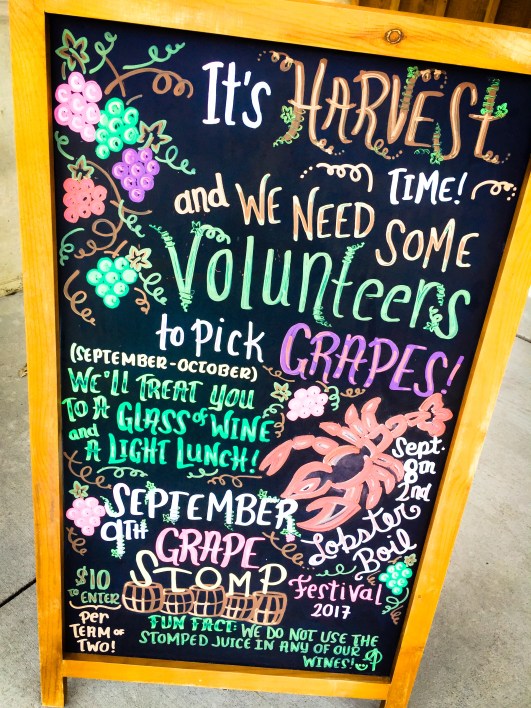 It's HARVEST
TIME!
and WE NEED SOME
Volunteers
to pick GRAPES!
(SEPTEMBER-OCTOBER)
WE'LL TREAT YOU
TO A GLASS of WINE
and A LIGHT LUNCH!
Sept.
8th
2nd
Lobster
Boil
Festival
2017
SEPTEMBER
9TH GRAPE
STOMP
$10
TO ENTER
PER
TEAM OF
TWO!
FUN FACT: WE DO NOT USE THE
STOMPED JUICE IN ANY OF OUR
WINES!